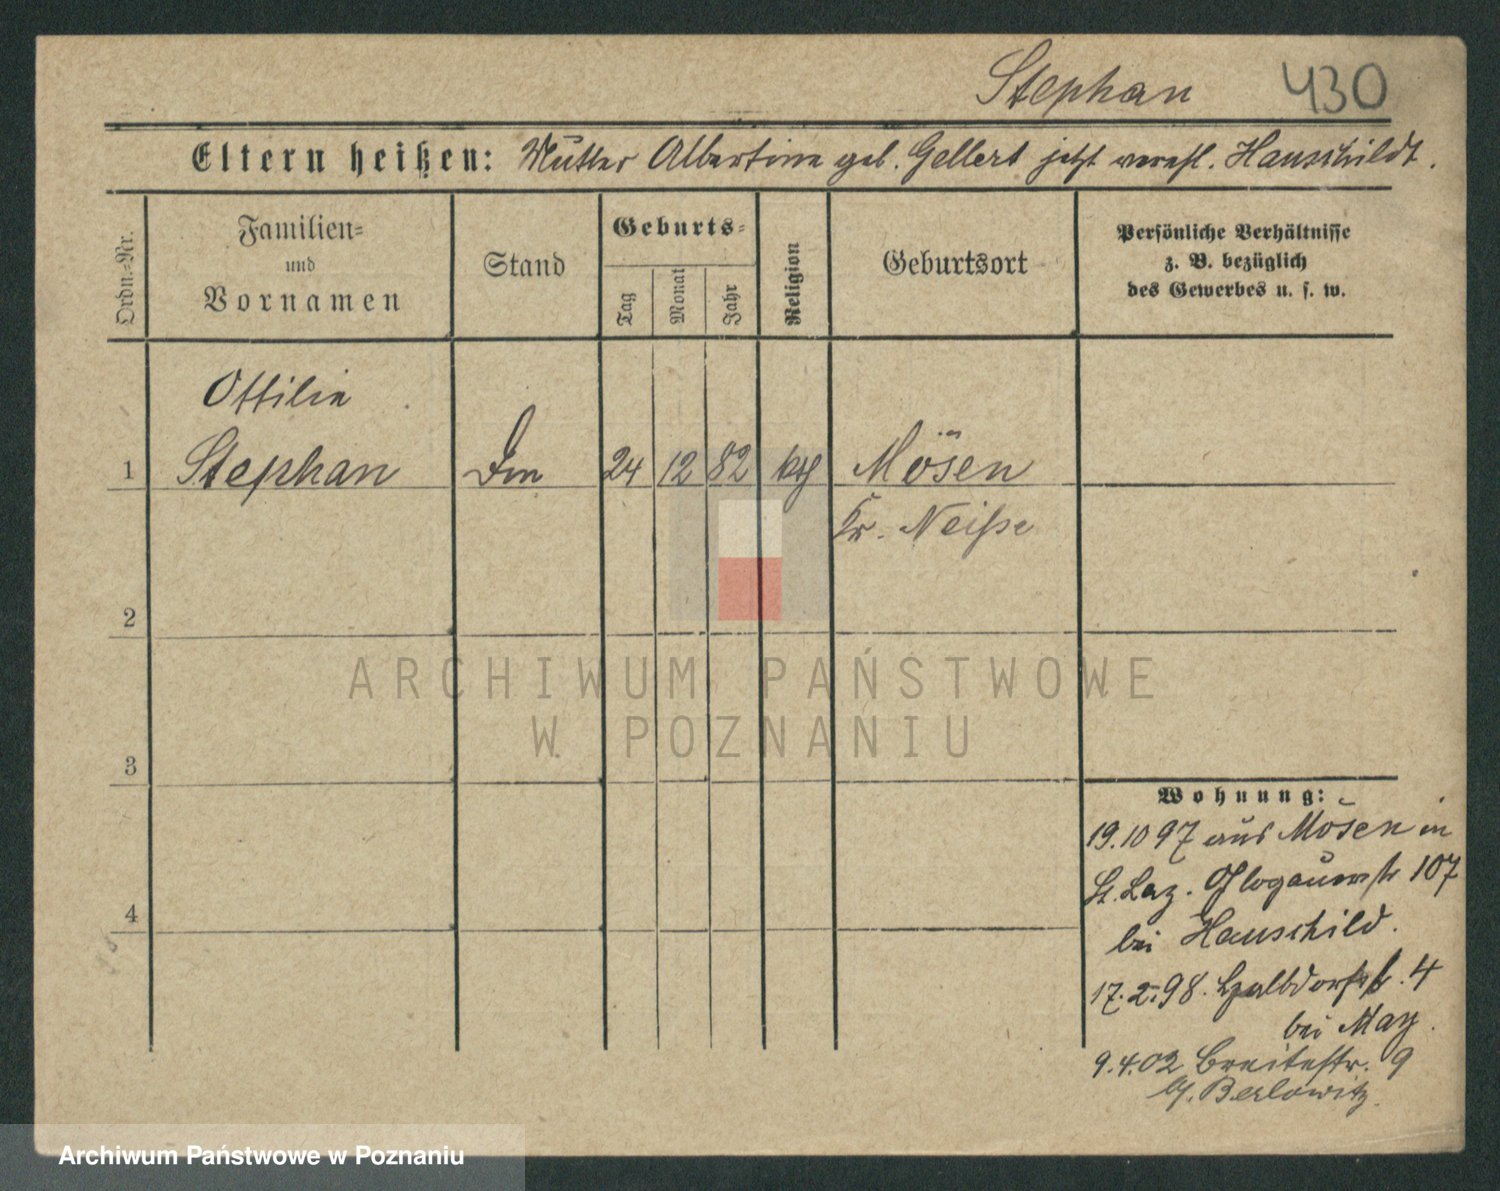 Stephan 430
Eltern heißen: Mutter Albertine geb. Gellert jetzt verehl. Hauschildt.
Ordn.=Nr.
Familien=
und
Vornamen
Stand
Geburts=
Tag
Monat
Jahr
Religion
Geburtsort
Persönliche Verhältnisse
z. B. bezüglich
des Gewerbes u. s. w.
Ottilie
1 Stephan 24 12 82 kth Mösen
Kr. Neiße
2
3
4
Wohnung:
19.10 97 aus Mösen in
St. Laz. Glogauerstr 107
bei Hauschild.
17.2.98. Halbdorfstr. 4
bei May.
9.4.02 Breitestr. 9
Berlowitz.
ARCHIWUM PAŃSTWOWE
W POZNANIU
Archiwum Państwowe w Poznaniu